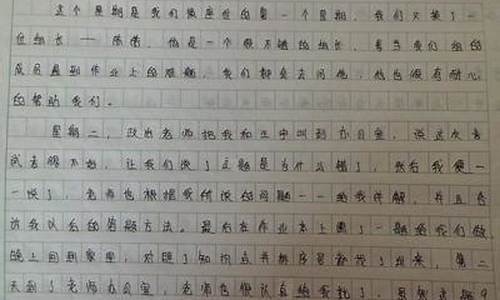 这个星期是我们换座位的第一个星期，我们又换了一
位组长——陈倩，他是一个很不错的组长，每当我们组的
成员遇到作业上的难题，我们都会去问他，他也很有耐心
的帮助我们。
星期二，政治老师把我和王宇叫到办公室，说这次考
试考得不好，让我们说了这题是为什么错了，然后我便一
一说了，老师也根据我所说的问题一一给我讲解，并且告
诉我以后的答题方法。最后在作业本上圈了一题给我们做，
晚上回到家里，对照了知识点并标序号就找了出来，第二
天到了老师办公室，老师也很认真给我批了，